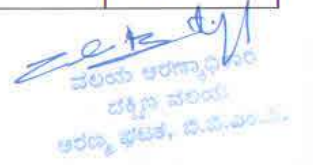 ವಲಯ ಅರಣ್ಯಾಧಿಕಾರಿ
ದಕ್ಷಿಣ ವಲಯ
ಅರಣ್ಯ ಘಟಕ, ಬಿ.ಬಿ.ಎಂ.ಪಿ.